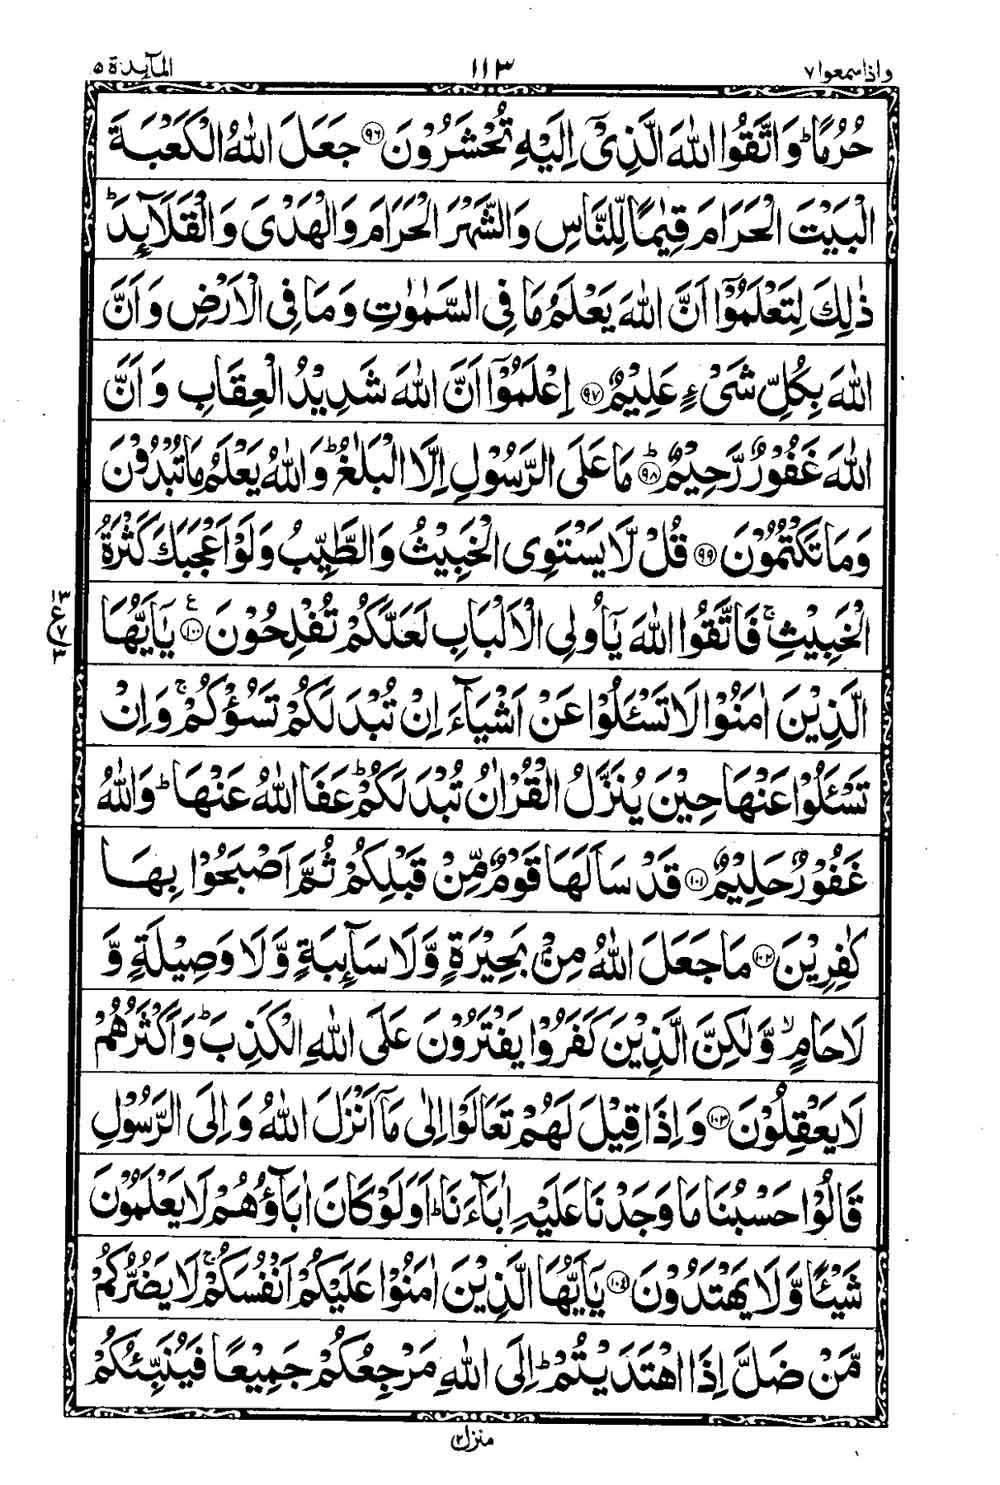 واذاسمعوا٧ ١١٣ المآىِٕدة ٥
حُرُمًا ؕ وَاتَّقُوا اللّٰهَ الَّذِیْۤ اِلَیْهِ تُحْشَرُوْنَ ﴿۹۶﴾ جَعَلَ اللّٰهُ الْكَعْبَةَ
الْبَیْتَ الْحَرَامَ قِیٰمًا لِّلنَّاسِ وَالشَّهْرَ الْحَرَامَ وَالْهَدْیَ وَالْقَلَآىِٕدَ ؕ
ذٰلِكَ لِتَعْلَمُوْۤا اَنَّ اللّٰهَ یَعْلَمُ مَا فِی السَّمٰوٰتِ وَمَا فِی الْاَرْضِ وَاَنَّ
اللّٰهَ بِكُلِّ شَیْءٍ عَلِیْمٌ ﴿۹۷﴾ اِعْلَمُوْۤا اَنَّ اللّٰهَ شَدِیْدُ الْعِقَابِ وَاَنَّ
اللّٰهَ غَفُوْرٌ رَّحِیْمٌ ؕ﴿۹۸﴾ مَا عَلَی الرَّسُوْلِ اِلَّا الْبَلٰغُ ؕ وَاللّٰهُ یَعْلَمُ مَا تُبْدُوْنَ
وَمَا تَكْتُمُوْنَ ﴿۹۹﴾ قُلْ لَّا یَسْتَوِی الْخَبِیْثُ وَالطَّیِّبُ وَلَوْ اَعْجَبَكَ كَثْرَةُ
الْخَبِیْثِ ۚ فَاتَّقُوا اللّٰهَ یٰۤاُولِی الْاَلْبَابِ لَعَلَّكُمْ تُفْلِحُوْنَ ﴿۱۰۰﴾ ع یٰۤاَیُّهَا
۱۳ ع ۷ ۳
الَّذِیْنَ اٰمَنُوْا لَا تَسْـَٔلُوْا عَنْ اَشْیَآءَ اِنْ تُبْدَ لَكُمْ تَسُؤْكُمْ ۚ وَاِنْ
تَسْـَٔلُوْا عَنْهَا حِیْنَ یُنَزَّلُ الْقُرْاٰنُ تُبْدَ لَكُمْ ؕ عَفَا اللّٰهُ عَنْهَا ؕ وَاللّٰهُ
غَفُوْرٌ حَلِیْمٌ ﴿۱۰۱﴾ قَدْ سَاَلَهَا قَوْمٌ مِّنْ قَبْلِكُمْ ثُمَّ اَصْبَحُوْا بِهَا
كٰفِرِیْنَ ﴿۱۰۲﴾ مَا جَعَلَ اللّٰهُ مِنْۢ بَحِیْرَةٍ وَّلَا سَآىِٕبَةٍ وَّلَا وَصِیْلَةٍ وَّ
لَا حَامٍ ۙ وَّلٰكِنَّ الَّذِیْنَ كَفَرُوْا یَفْتَرُوْنَ عَلَی اللّٰهِ الْكَذِبَ ؕ وَاَكْثَرُهُمْ
لَا یَعْقِلُوْنَ ﴿۱۰۳﴾ وَاِذَا قِیْلَ لَهُمْ تَعَالَوْا اِلٰی مَاۤ اَنْزَلَ اللّٰهُ وَاِلَی الرَّسُوْلِ
قَالُوْا حَسْبُنَا مَا وَجَدْنَا عَلَیْهِ اٰبَآءَنَا ؕ اَوَلَوْ كَانَ اٰبَآؤُهُمْ لَا یَعْلَمُوْنَ
شَیْـًٔا وَّلَا یَهْتَدُوْنَ ﴿۱۰۴﴾ یٰۤاَیُّهَا الَّذِیْنَ اٰمَنُوْا عَلَیْكُمْ اَنْفُسَكُمْ ۚ لَا یَضُرُّكُمْ
مَّنْ ضَلَّ اِذَا اهْتَدَیْتُمْ ؕ اِلَی اللّٰهِ مَرْجِعُكُمْ جَمِیْعًا فَیُنَبِّئُكُمْ
منزل ۲